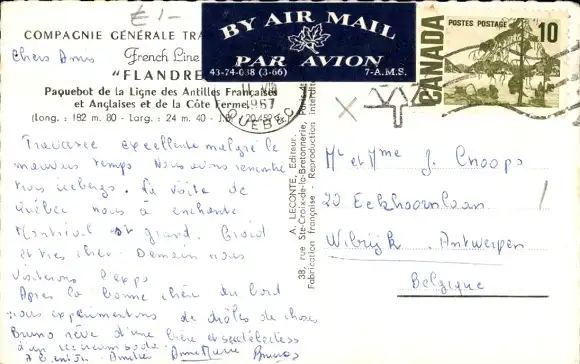 £1-
COMPAGNIE GÉNÉRALE TRA
French Line
"FLANDRE
Paquebot de la Ligne des Antilles Françaises
et Anglaises et de la Côte Ferme
(Long. : 182 m. 80 - Larg. : 24 m. 40 -
BY AIR MAIL
PAR AVION
43-74-038 (3-66) 7-A.M.S.
POSTES POSTAGE 10
CANADA
1967
QUEBEC
Chers Amis
Traversée excellente malgré le
mauvais temps Nous avons rencontré
trois icebergs. La visite de
Québec nous a enchanté
Montréal est grand. Froid
et très cher. Demain nous
visiterons l'expo
Après la bonne chère du bord
nous expérimentons de drôles de choses
Bruno rêve d'une bière et
Anne Marie Bruno
A. LECONTE, Editeur.
38, rue Ste-Croix-de-la-Bretonnerie, Paris
Fabrication française - Reproduction interdite
Mr et Mme J. Cnoops
20 Eekhoornlaan
Wilrijk Antwerpen
Belgique